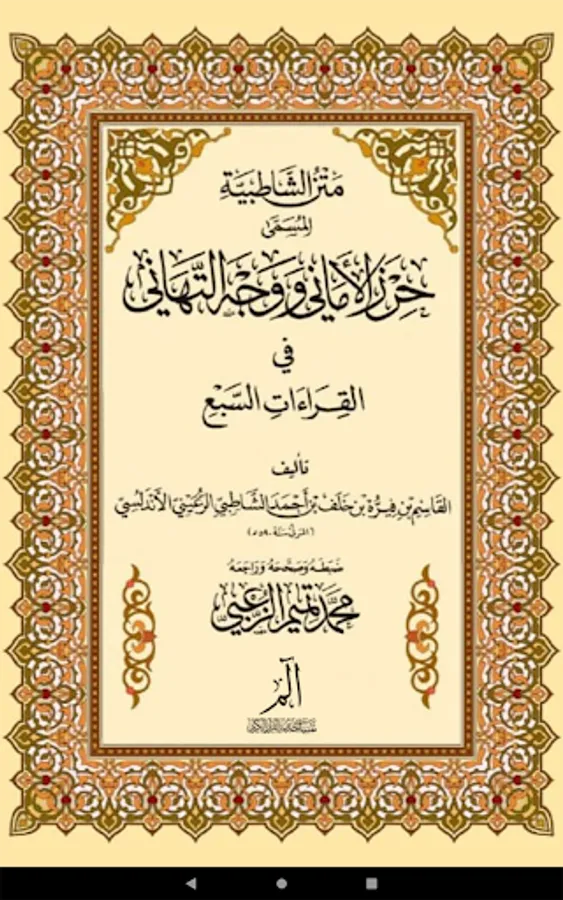 مَتْنُ الشَّاطِبِيَّةِ
المُسَمَّى
حِرْزُ الأَمَانِي وَوَجْهُ التَّهَانِي
فِي
القِرَاءَاتِ السَّبْعِ
تأليف
القَاسِم بْن فِيرُّه بْن خَلَف بْن أَحْمَد الشَّاطِبِي الرُّعَيْنِي الأَنْدَلُسِي
(المتوفى سنة ٥٩٠هـ)
ضَبَطَهُ وَصَحَّحَهُ وَرَاجَعَهُ
مُحَمَّد تَمِيم الزُّعْبِي
الٓمٓ